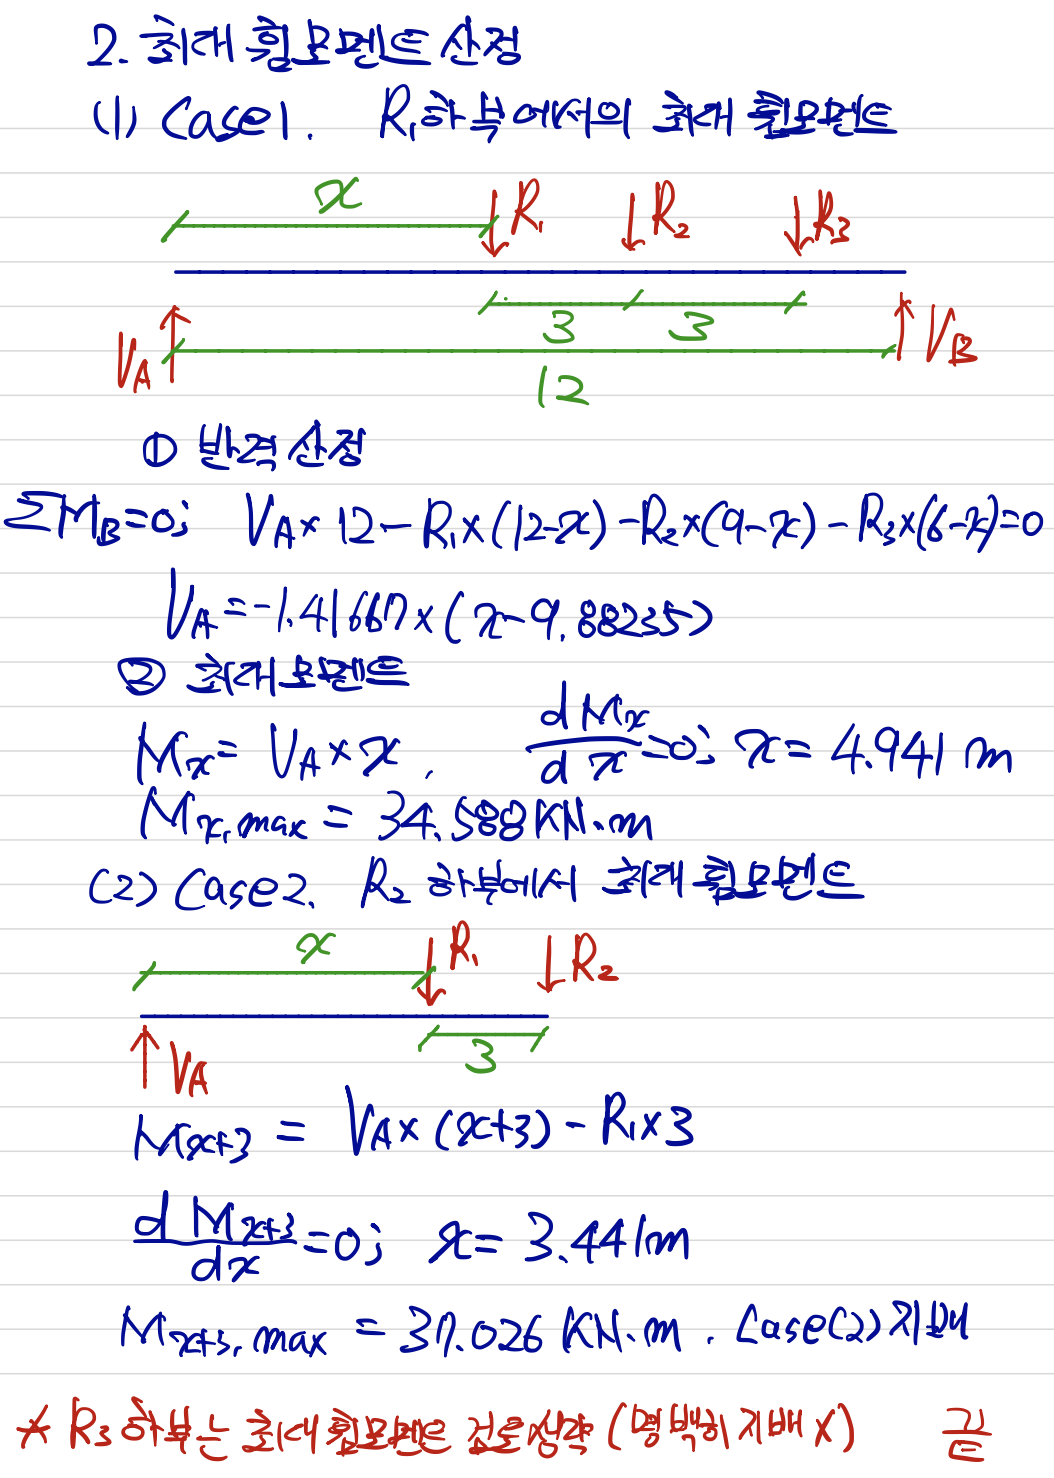 2. 최대 휨모멘트 산정
(1) Case1. R₁하부에서의 최대 휨모멘트
x R₁ R₂ R₃
3 3
V_A 12 V_B
① 반력 산정
ΣM_B=0; V_A×12-R₁×(12-x)-R₂×(9-x)-R₃×(6-x)=0
V_A=-1.41667×(x-9.88235)
② 최대모멘트
M_x= V_A×x. dM_x/dx=0; x=4.941 m
M_x,max = 34.588 KN.m
(2) Case2. R₂ 하부에서 최대 휨모멘트
x R₁ R₂
V_A 3
M_x+3 = V_A×(x+3)-R₁×3
dM_x+3/dx=0; x=3.441m
M_x+3,max = 37.026 KN.m. Case(2) 지배
* R₃하부는 최대휨모멘트 검토생략 (명백히 지배X) 끝